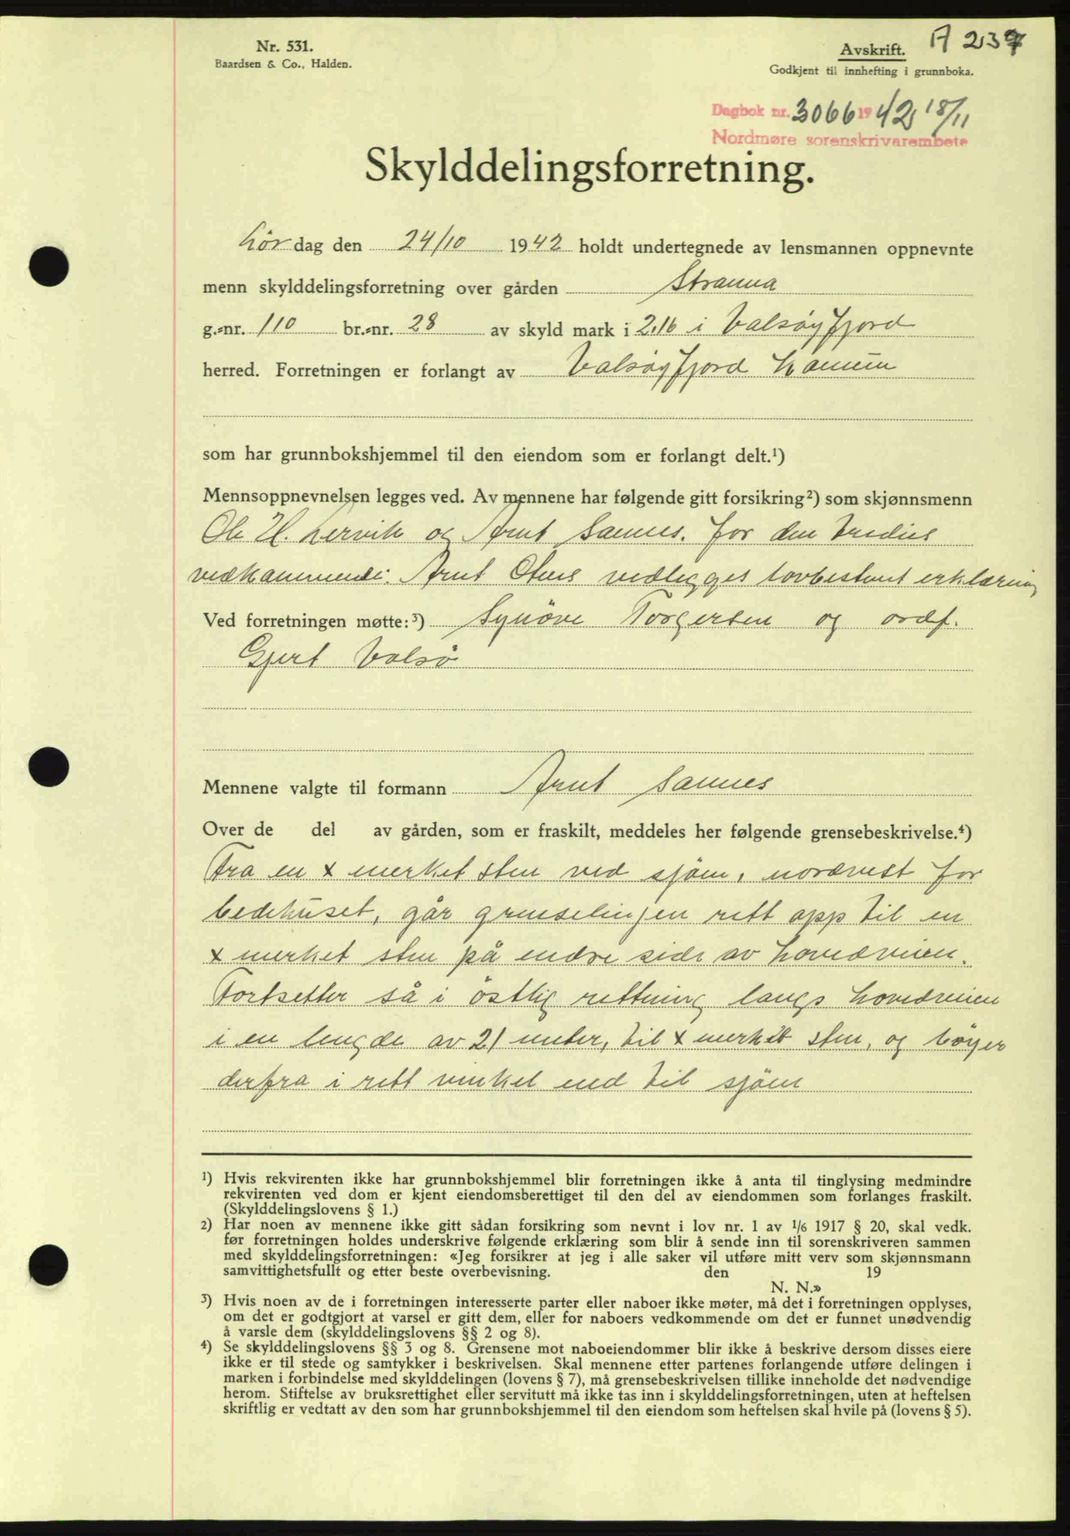 Nr. 531.
Baardsen & Co., Halden.
Avskrift.
A 237
Godkjent til innhefting i grunnboka.
Dagbok nr. 3066 1942 18/11
Nordmøre sorenskrivarembete
Skylddelingsforretning.
Lör dag den 24/10 1942 holdt undertegnede av lensmannen oppnevnte
menn skylddelingsforretning over gården Stranna
g.-nr. 110 br.-nr. 28 av skyld mark i 2,16 i Valsöyfjord
herred. Forretningen er forlangt av Valsöyfjord
som har grunnbokshjemmel til den eiendom som er forlangt delt.¹)
Mennsoppnevnelsen legges ved. Av mennene har følgende gitt forsikring²) som skjønnsmenn
Ole H. Lervik og Arnt Sannes. for den tredies
vedkommende: Arnt vedlegges lovbestemt erklæring
Ved forretningen møtte:³) Synöve Torgersen og ordf.
Gjert Valsö
Mennene valgte til formann Arnt Sannes
Over de del av gården, som er fraskilt, meddeles her følgende grensebeskrivelse.⁴)
Fra en x merket sten ved sjöen, nordvest for
bedehuset, går grenselinjen rett opp til en
x merket sten på endre side av hovedveien.
Fortsetter så i östlig rettning langs hovedveien
i en lengde av 21 meter, til x merket sten, og böyer
derfra i rett vinkel ned til sjöen
¹) Hvis rekvirenten ikke har grunnbokshjemmel blir forretningen ikke å anta til tinglysing medmindre
rekvirenten ved dom er kjent eiendomsberettiget til den del av eiendommen som forlanges fraskilt.
(Skylddelingslovens § 1.)
²) Har noen av mennene ikke gitt sådan forsikring som nevnt i lov nr. 1 av 1/6 1917 § 20, skal vedk.
før forretningen holdes underskrive følgende erklæring som blir å sende inn til sorenskriveren sammen
med skylddelingsforretningen: «Jeg forsikrer at jeg i alle saker vil utføre mitt verv som skjønnsmann
samvittighetsfullt og etter beste overbevisning. den 19
N. N.»
³) Hvis noen av de i forretningen interesserte parter eller naboer ikke møter, må det i forretningen opplyses,
om det er godtgjort at varsel er gitt dem, eller for naboers vedkommende om det er funnet unødvendig
å varsle dem (skylddelingslovens §§ 2 og 8).
⁴) Se skylddelingslovens §§ 3 og 8. Grensene mot naboeiendommer blir ikke å beskrive dersom disses eiere
ikke er til stede og samtykker i beskrivelsen. Skal mennene etter partenes forlangende utføre delingen i
marken i forbindelse med skylddelingen (lovens § 7), må grensebeskrivelsen tillike inneholde det nødvendige
herom. Stiftelse av bruksrettighet eller servitutt må ikke tas inn i skylddelingsforretningen, uten at heftelsen
skriftlig er vedtatt av den som har grunnbokshjemmel til den eiendom som heftelsen skal hvile på (lovens § 5).